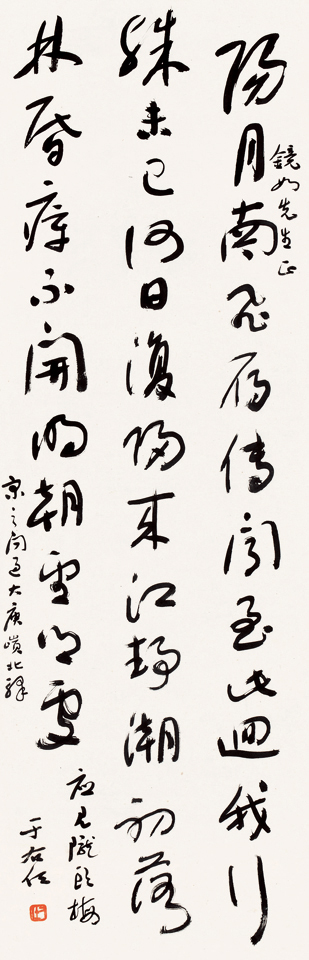 陽月南飛雁傳聞至此迴我行
鏡如先生正
殊未已何日復歸來江靜潮初落
林昏瘴不開明朝望鄉處
應見隴頭梅
宋之問題大庾嶺北驛
于右任